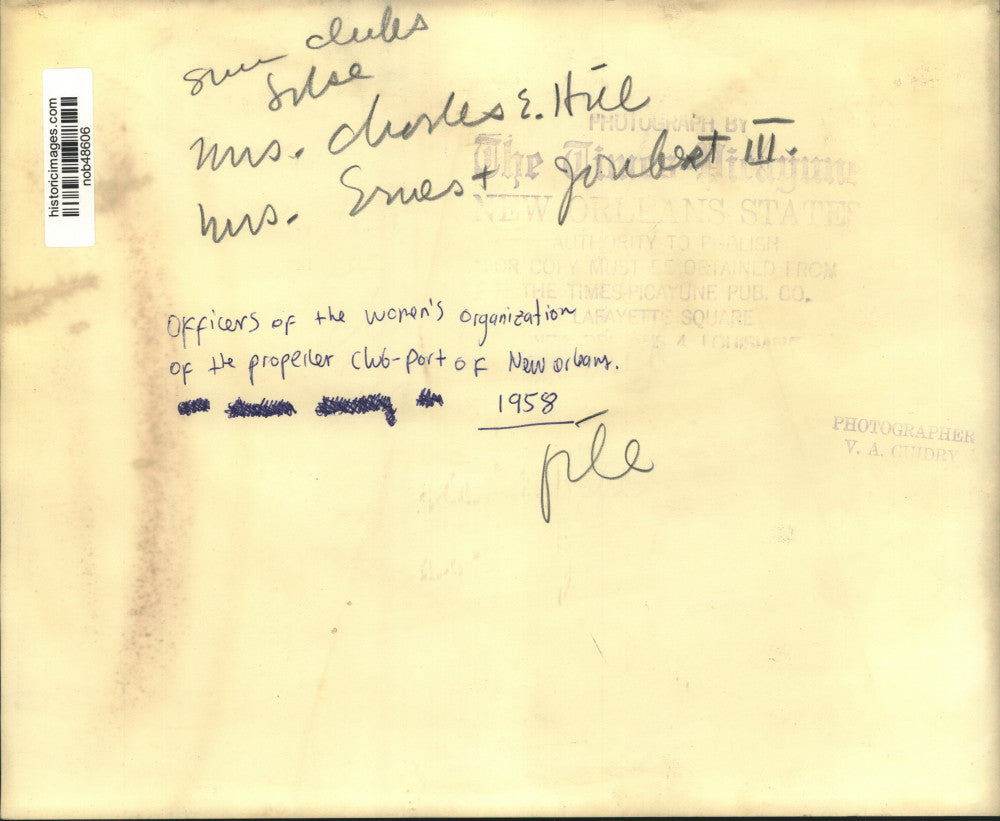 Sun clubs
Mrs. Charles E. Hill
Mrs. Ernest Joubert III.
historicimages.com
nob48606
PHOTOGRAPH BY
The Times-Picayune
NEW ORLEANS STATES
AUTHORITY TO PUBLISH
OR COPY MUST BE OBTAINED FROM
THE TIMES-PICAYUNE PUB. CO.
LAFAYETTE SQUARE
Officers of the women's organization
of the propeller club-port of New orleans.
1958
file
PHOTOGRAPHER
V. A. GUIDRY